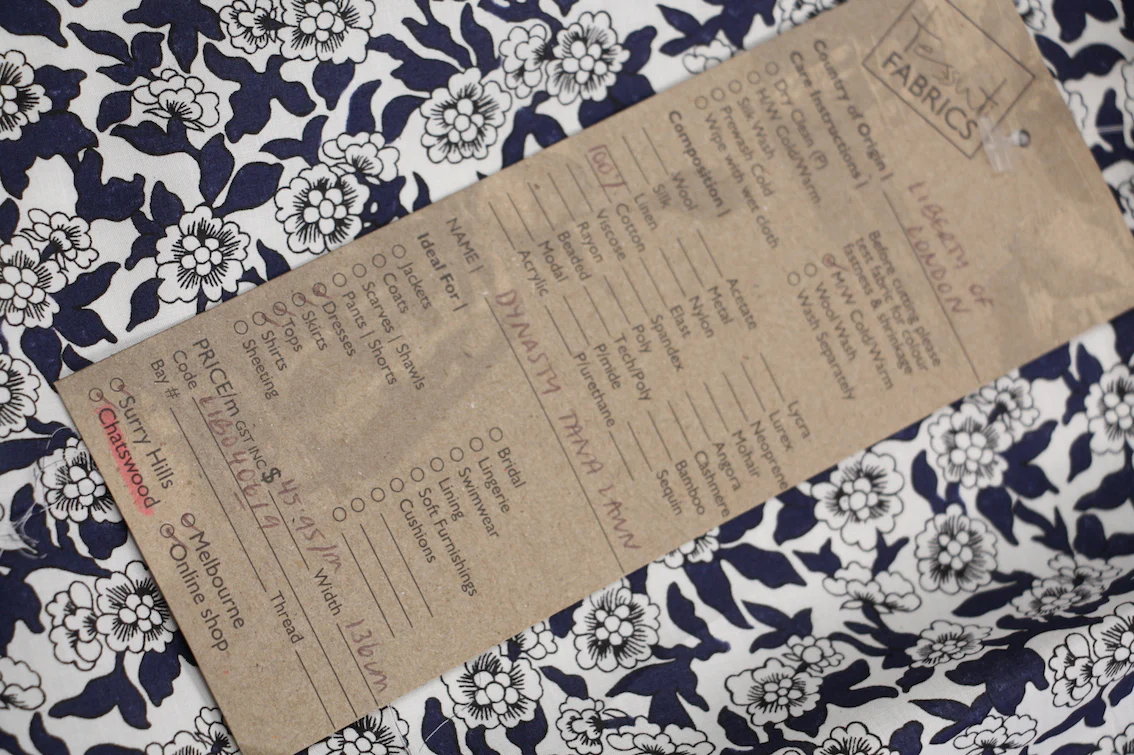 Tessuti
FABRICS
Country of Origin | LIBERTY OF
LONDON
Care Instructions |
Before cutting please
test fabric for colour
fastness & shrinkage
Dry Clean (P)
H/W Cold/Warm
Silk Wash
Prewash Cold
Wipe with wet cloth
M/W Cold/Warm
Wool Wash
Wash Separately
Composition |
Wool
Silk
Linen
100% Cotton
Viscose
Rayon
Beaded
Modal
Acrylic
Acetate
Metal
Nylon
Elast
Spandex
Poly
Tech/Poly
P/mide
P/urethane
Lycra
Lurex
Neoprene
Mohair
Angora
Cashmere
Bamboo
Sequin
NAME | DYNASTY TANA LAWN
Ideal For |
Jackets
Coats
Scarves | Shawls
Pants | Shorts
Dresses
Skirts
Tops
Shirts
Sheeting
Bridal
Lingerie
Swimwear
Lining
Soft Furnishings
Cushions
PRICE/m GST INC $ 45.95/m Width 136cm
Code LIB040619
Bay # Thread
Surry Hills Melbourne
Chatswood Online shop